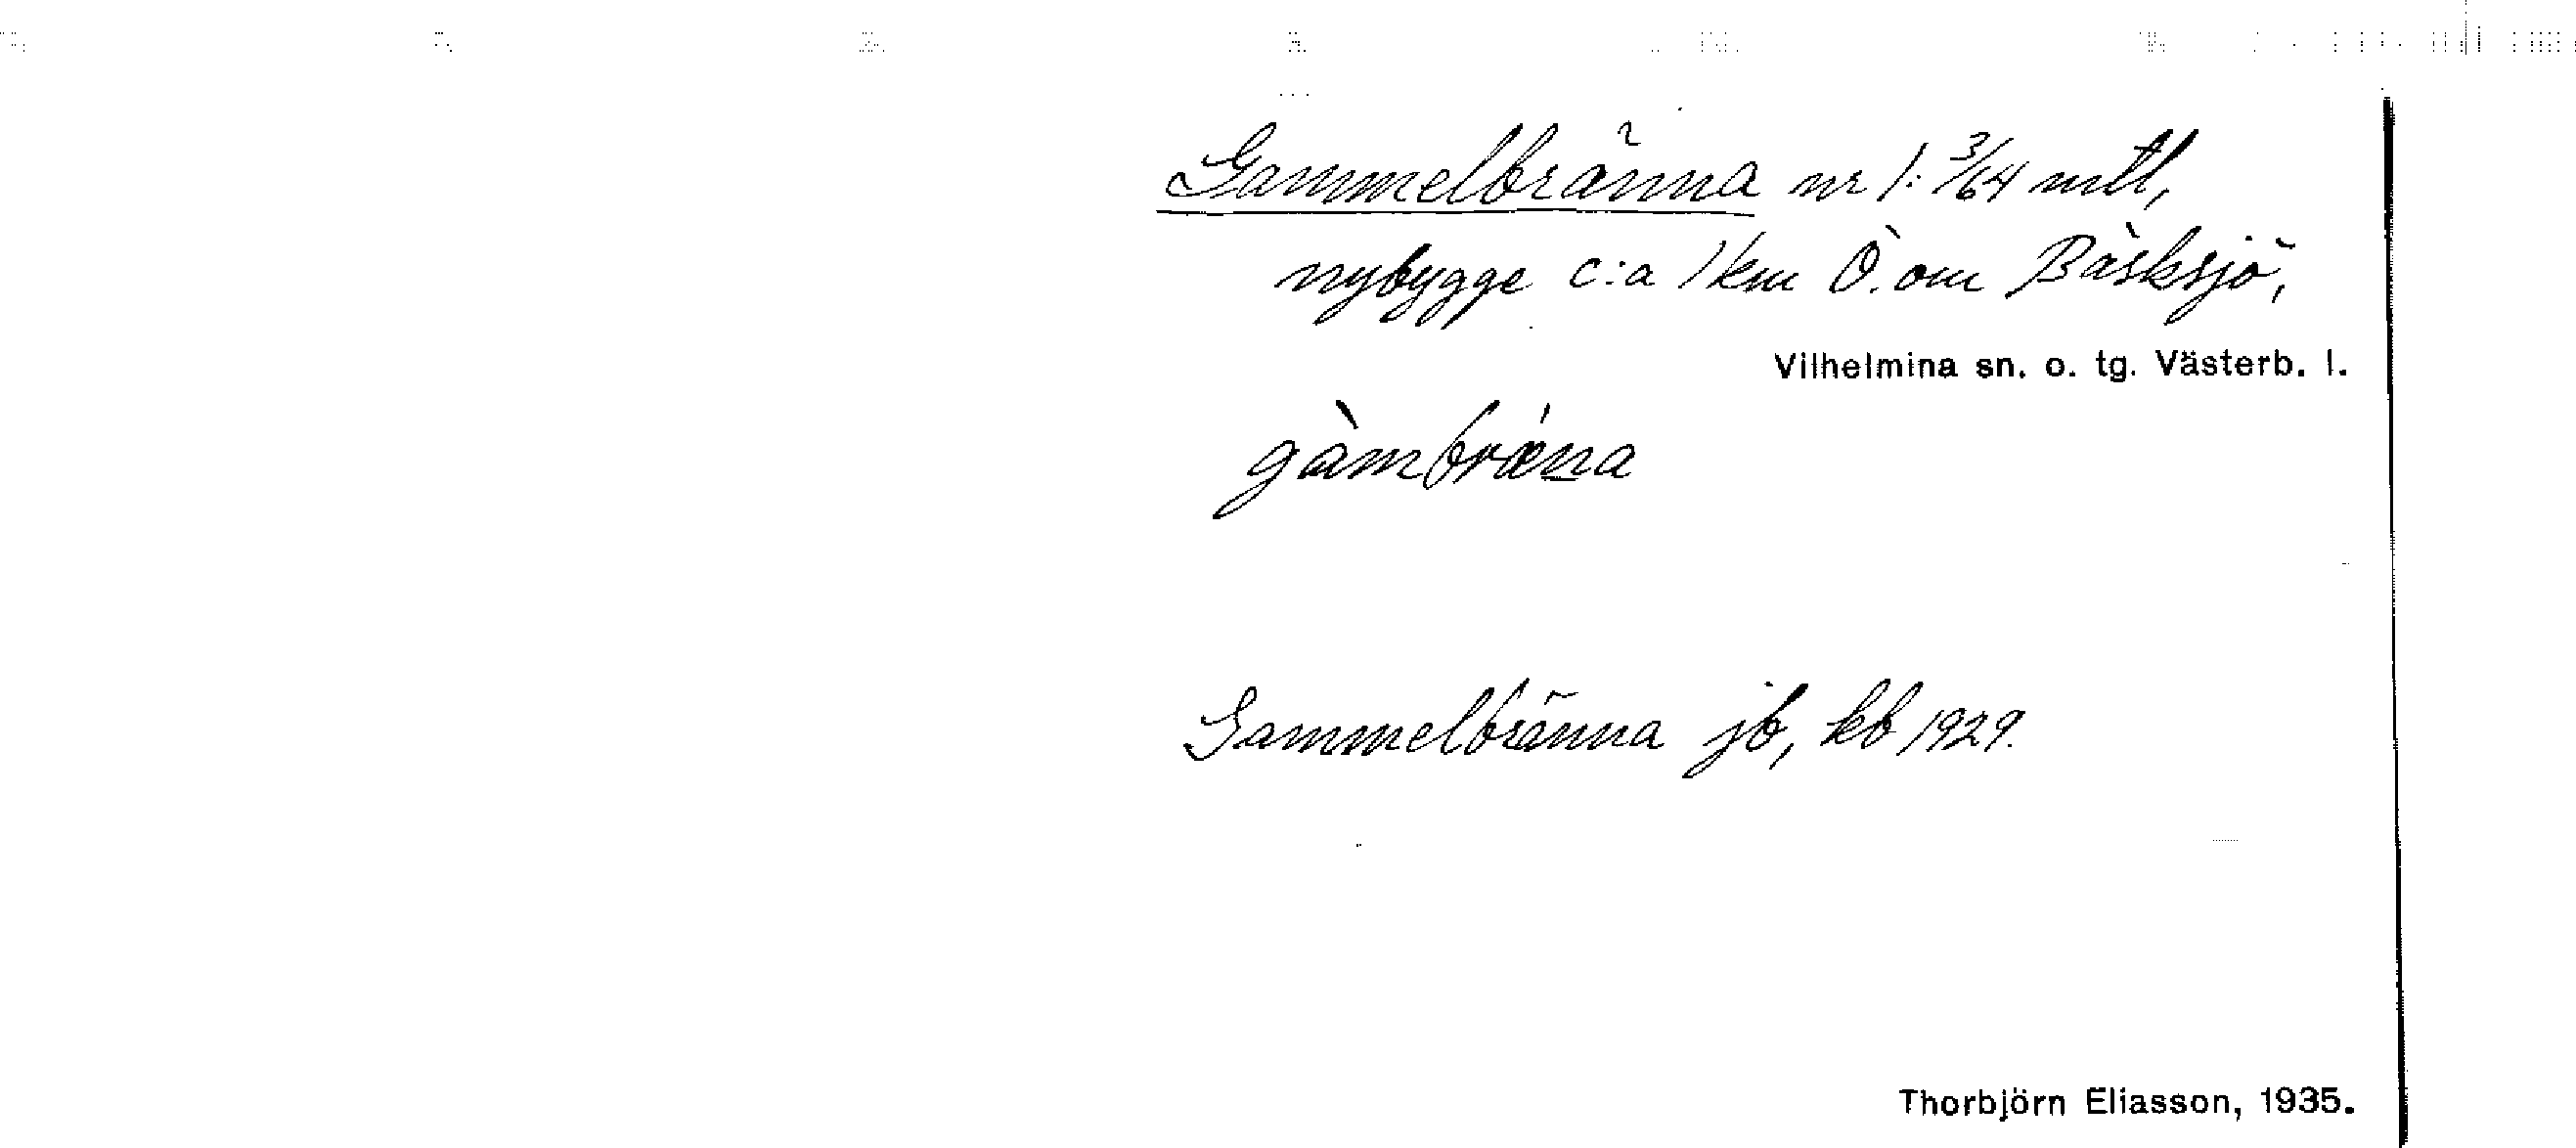 Gammelbränna nr 1: 3/64 mtl,
nybygge c:a 1 km Ö. om Bäsksjö,
Vilhelmina sn. o. tg. Västerb. l.
gàmbrǽna
Gammelbränna jb, kb 1929.
Thorbjörn Eliasson, 1935.